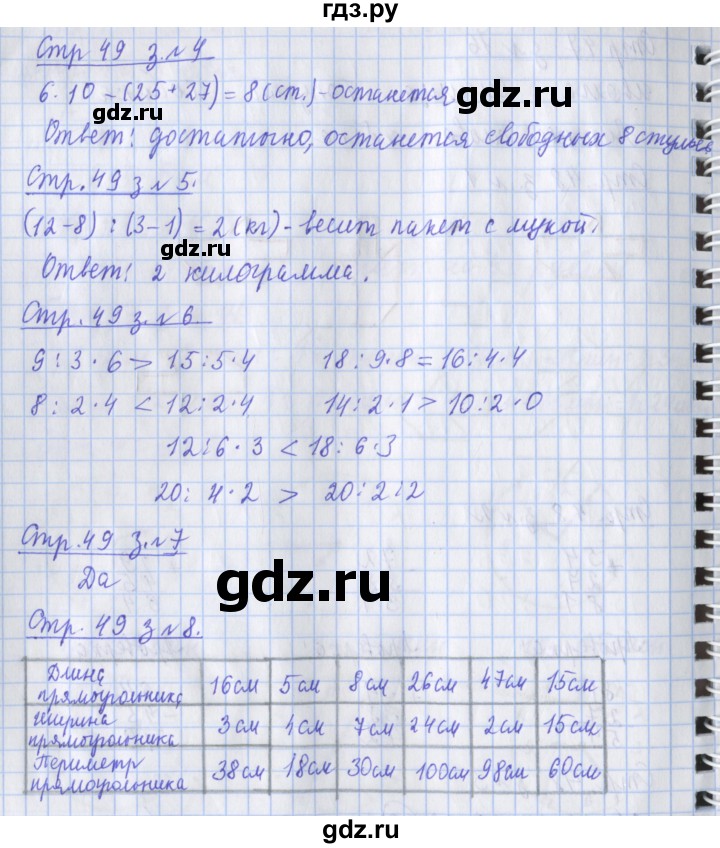 гдз.ру
Стр 49 з.№4
6·10-(25+27)=8(ст.)-останется
gdz.ru gdz.ru
Ответ: достаточно, останется свободных 8 стульев
Стр.49 з №5.
(12-8):(3-1)=2(кг)-весит пакет с мукой.
gdz.ru
Ответ: 2 килограмма.
Стр.49 з.№6
9:3·6>15:5·4 18:9·8=16:4·4
8:2·4<12:2·4 14:2·1>10:2·0
12:6·3<18:6·3
20:4·2>20:2:2
Стр.49 з.№7
Да
gdz.ru
Стр.49 з №8.
Длина прямоугольника 16см 5см 8см 26см 47см 15см
Ширина прямоугольника 3см 4см 7см 24см 2см 15см
Периметр прямоугольника 38см 18см 30см 100см 98см 60см
gdz.ru